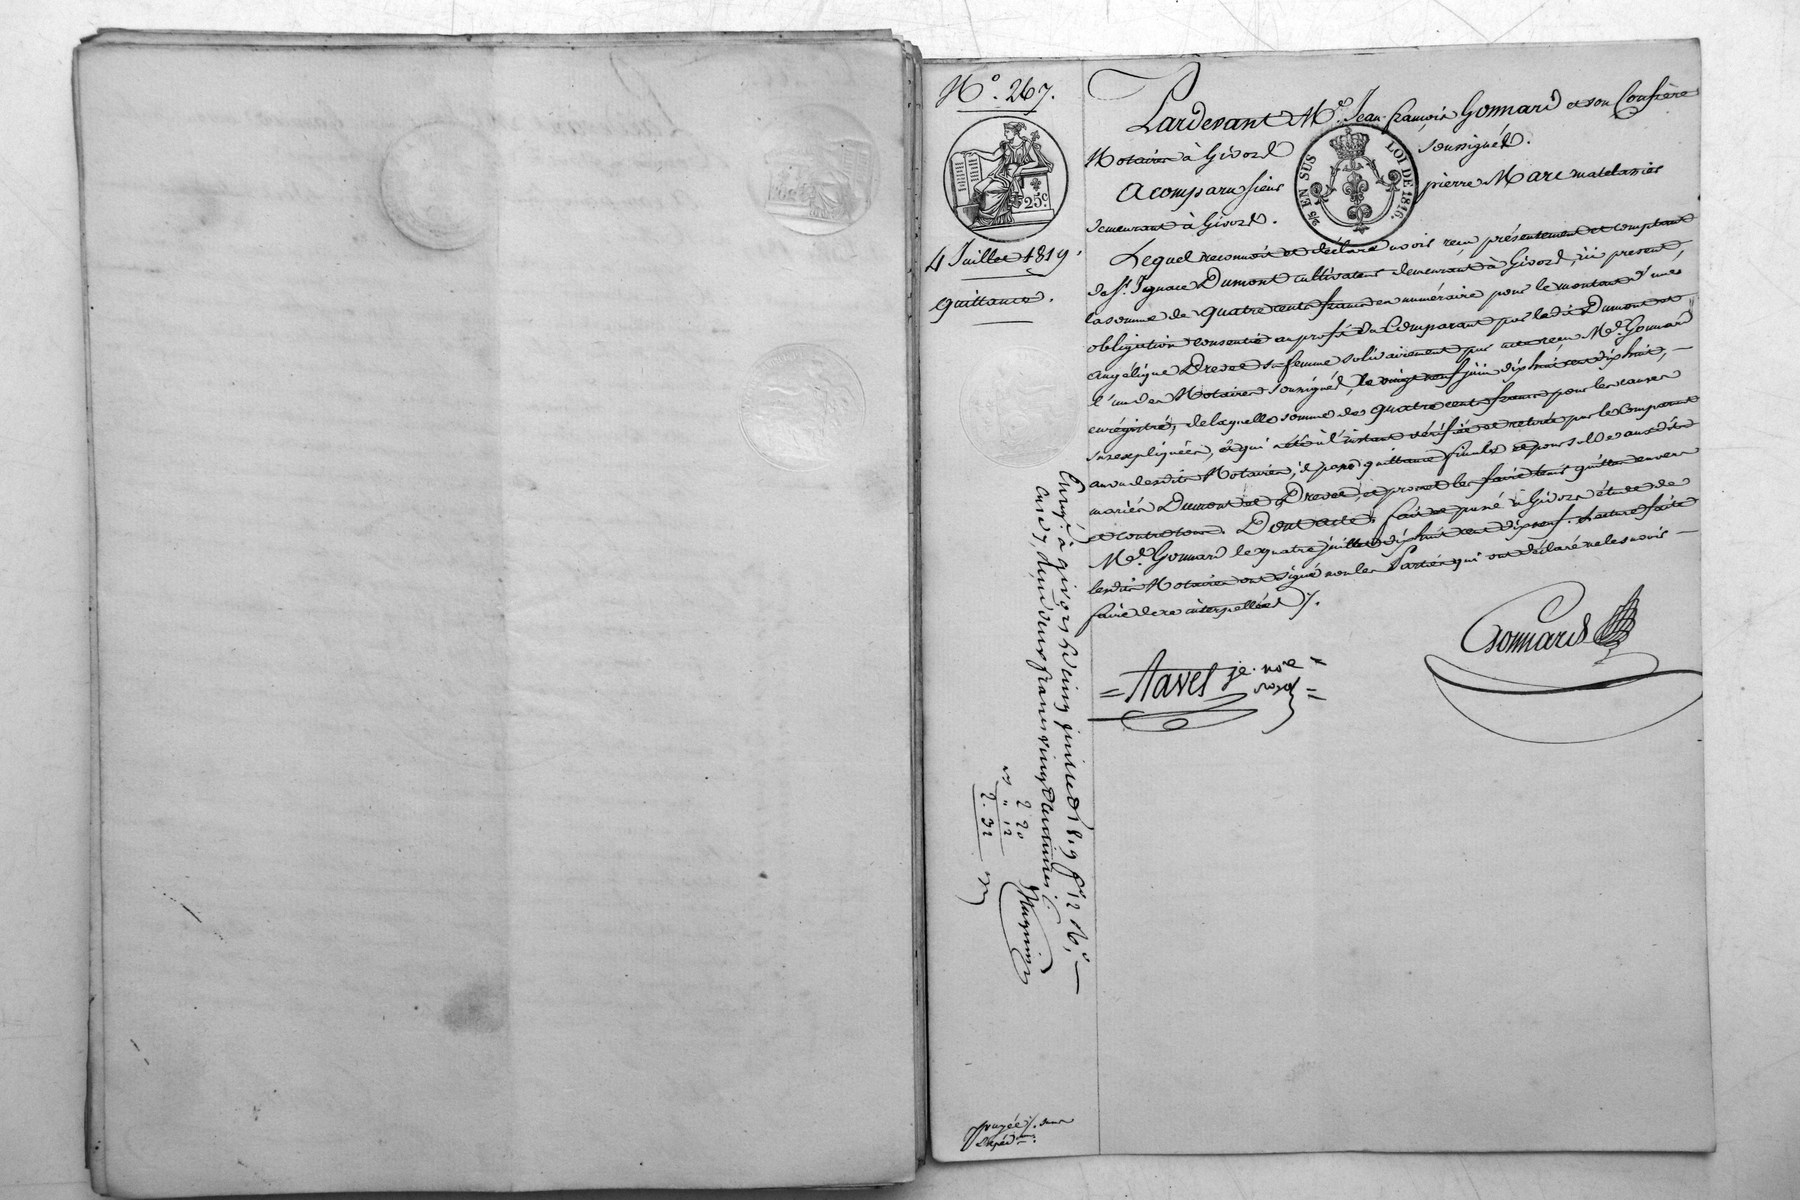 N.o 267.
25.c
4 Juillet 1819.
quittance.
Pardevant M.e Jean-françois Gonnard et son Confrère
Notaires à Givors soussignés.
EN SUS LOI DE 1816.
a comparu sieur pierre Marc matelassier
demeurant à Givors.
Lequel reconnoit et déclare avoir reçu présentement et comptant
de S.r Ignace Dumont cultivateur demeurant à Givors, ici présent,
la somme de quatre cents francs en numéraire pour le montant d'une
obligation consentie au profit du Comparant par ledit Dumont et
angélique Drevet sa femme solidairement par acte reçu M.e Gonnard
l'un des Notaires soussignés, le vingt neuf juin dix huit cent dix huit,
enrégistré, de laquelle somme de quatre cents francs pour les causes
susexpliquées, et qui a été à l'instant vérifiée et retirée par le Comparant
au vu desdits Notaires, il passe quittance finale et pour solde auxdits
mariés Dumont et Drevet, et promet les faire tenir quittes envers
et contre tous. Dont acte, fait et passé à Givors étude de
M.e Gonnard le quatre juillet dix huit cent dix neuf. Lecture faite
lesdits Notaires ont signé non les Parties qui ont déclaré ne le savoir
faire de ce interpellées ./.
= Navel je. no.re =
royal =
Gonnard
Enreg.é à givors le cinq juillet 1819 f.o 12
Case 7, reçu deux francs vingt centimes
2 20
" 12
2. 32